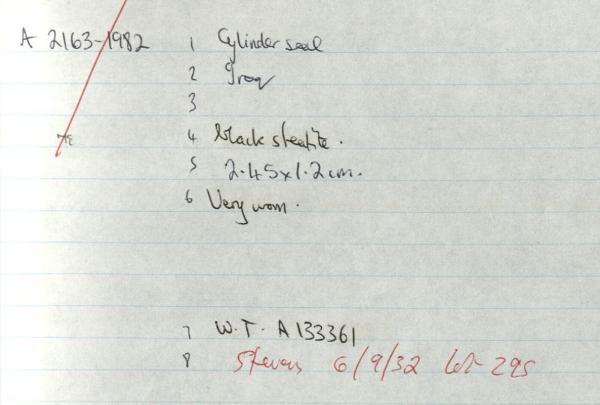 A 2163-1982 1 Cylinder seal
2 Iraq
3
4 black steatite.
5 2.45x1.2cm.
6 Very worn.
7 W.T. A133361
8 Stevens 6/9/32 lot 295